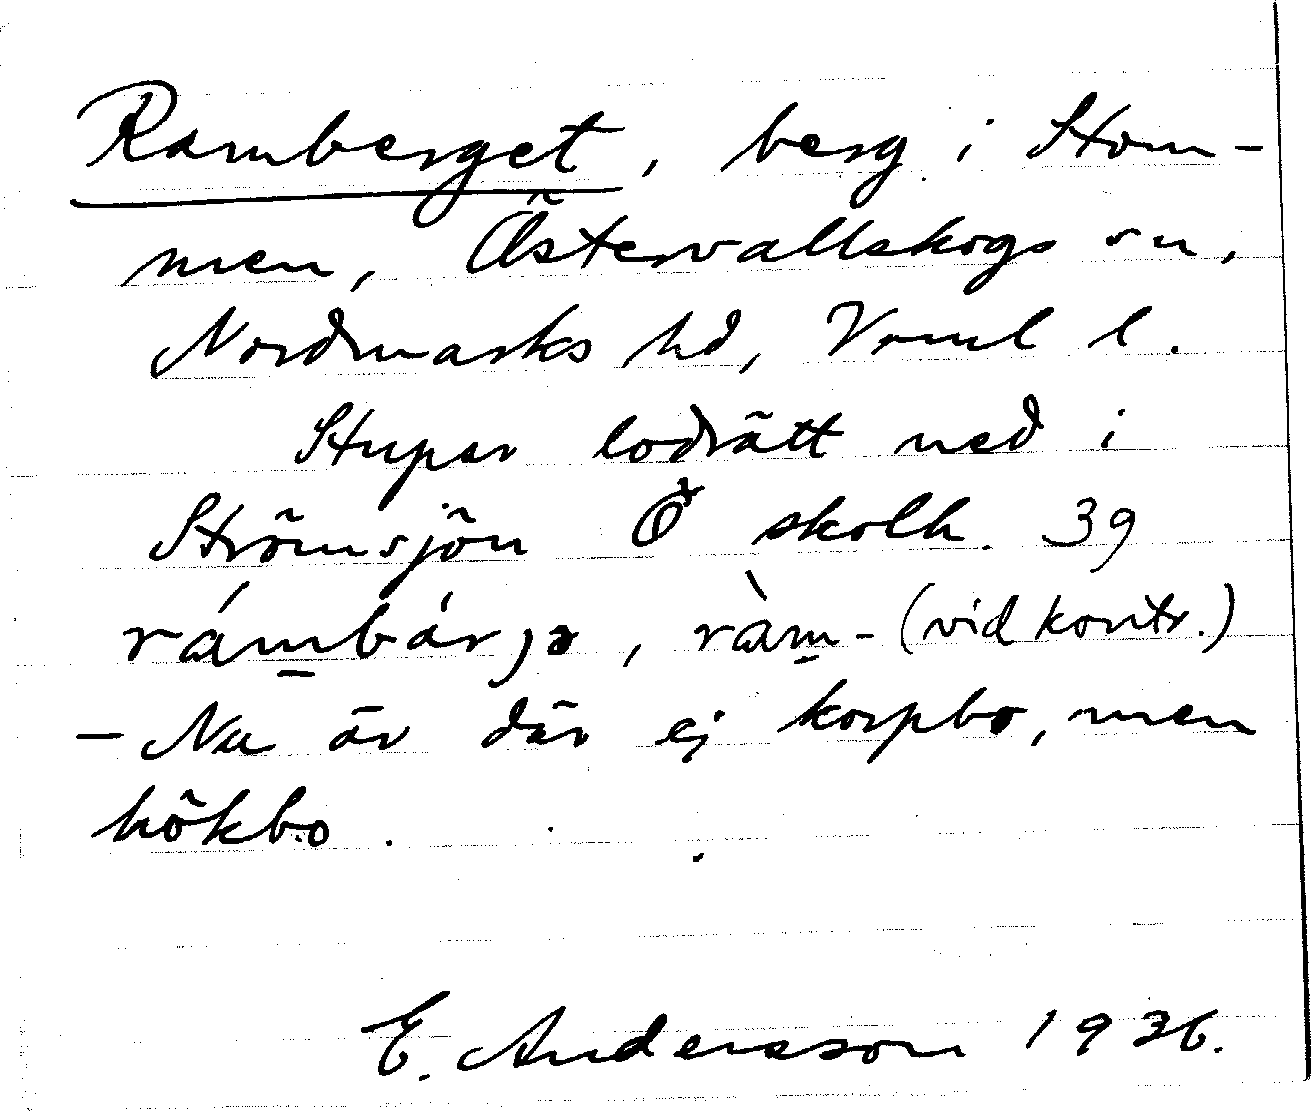 Ramberget, berg i Stom-
men, Östervallskogs sn,
Nordmarks hd, Vrml l.
Stupar lodrätt ned i
Strömsjön Ö skolh. 39
rámbárjə, ràm- (vid kontr.)
– Nu är där ej korpbo, men
hökbo.
E. Andersson 1936.